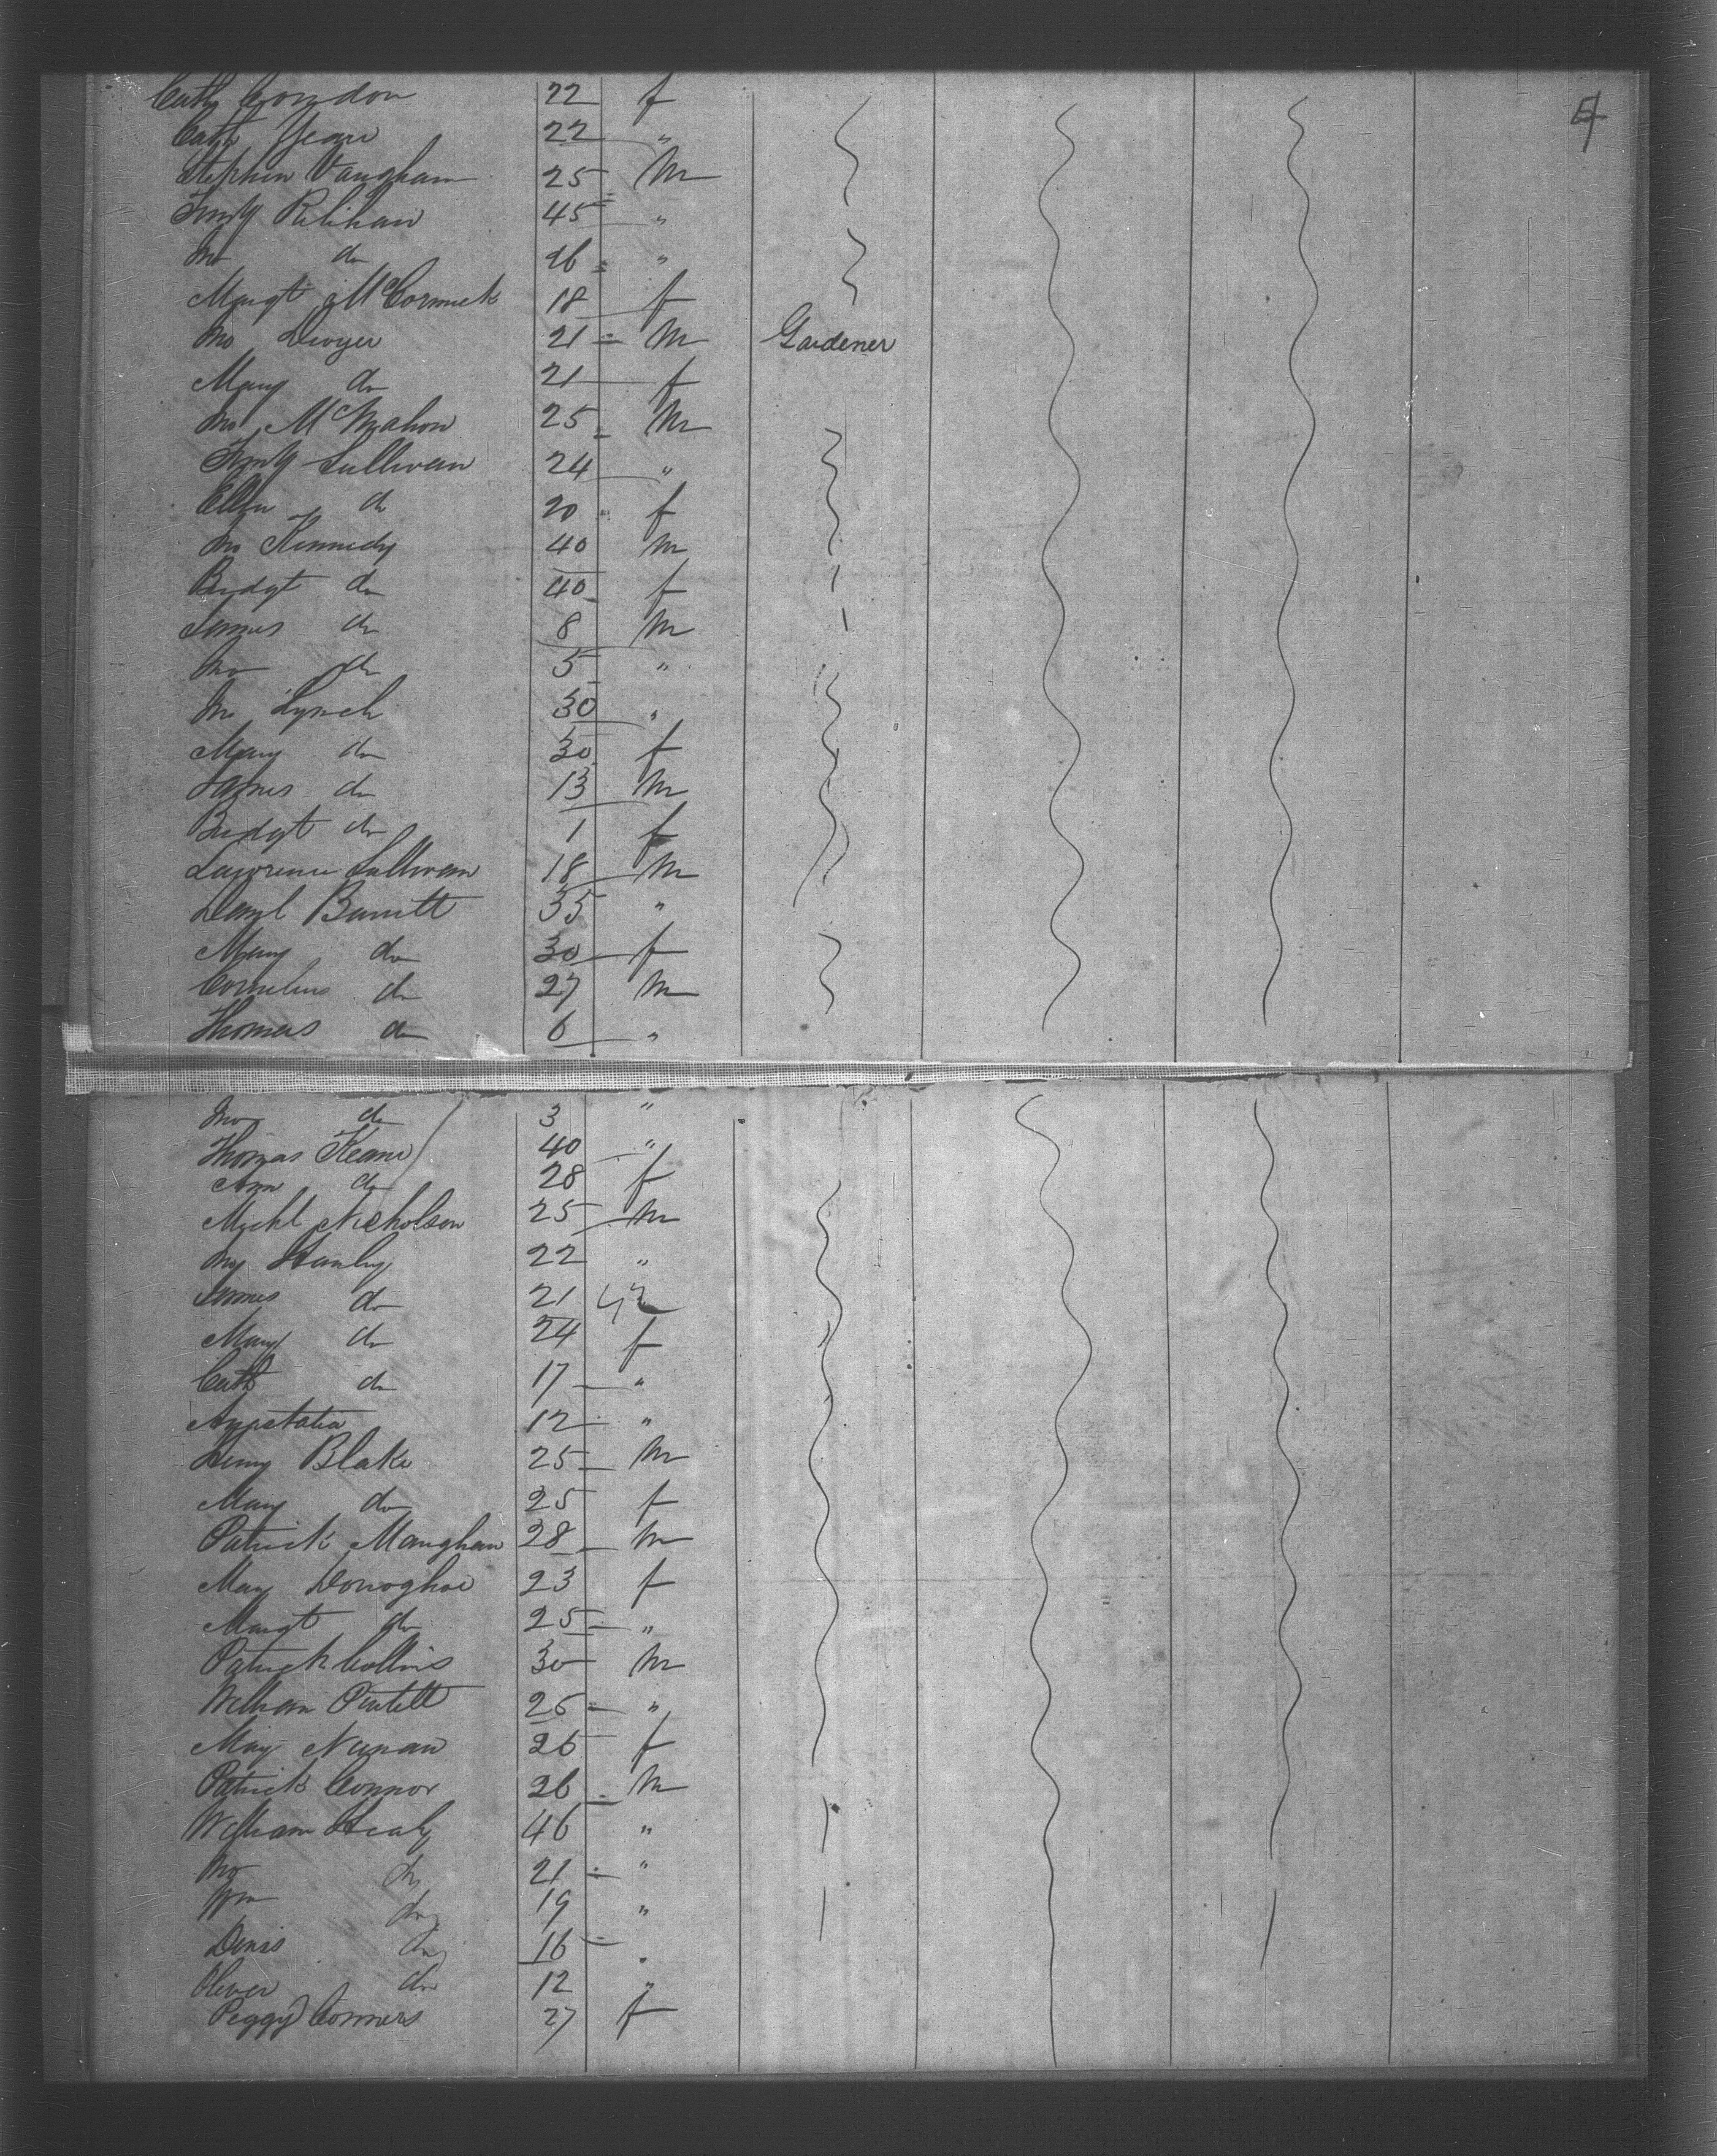 Cath Condon 22 f
Cath Yeane 22 "
Stephen Vaughan 25 M
Timy Relihan 45 "
Jno do 26 "
Margt McCormick 18 f
Jno Dwyer 21 M Gardener
Mary do 21 f
Jno McMahon 25 M
Timy Sullivan 24 "
Ellen do 20 f
Jno Kennedy 40 M
Bridgt do 40 f
James do 8 M
Jno do 5 "
Jno Lynch 30 "
Mary do 30 f
James do 13 M
Bridgt do 1 f
Lawrence Sullivan 18 M
Danl Barrett 35 "
Mary do 30 f
Cornelius do 27 M
Thomas do 6 "
Jno do 3 "
Thomas Keane 40 "
Ann do 28 f
Michl Nicholson 25 M
Jno Hanly 22 "
James do 21
Mary do 24 f
Cath do 17 "
Anastatia 12 "
Henry Blake 25 M
Mary do 25 f
Patrick Maughan 28 M
Mary Donoghoe 23 f
Margt do 25 "
Patrick Collins 30 M
William 25 "
Mary Nunan 26 f
Patrick Connor 26 M
William Healy 46 "
Jno do 21 "
Wm do 19 "
Denis do 16 "
Oliver do 12 "
Peggy Conners 27 f